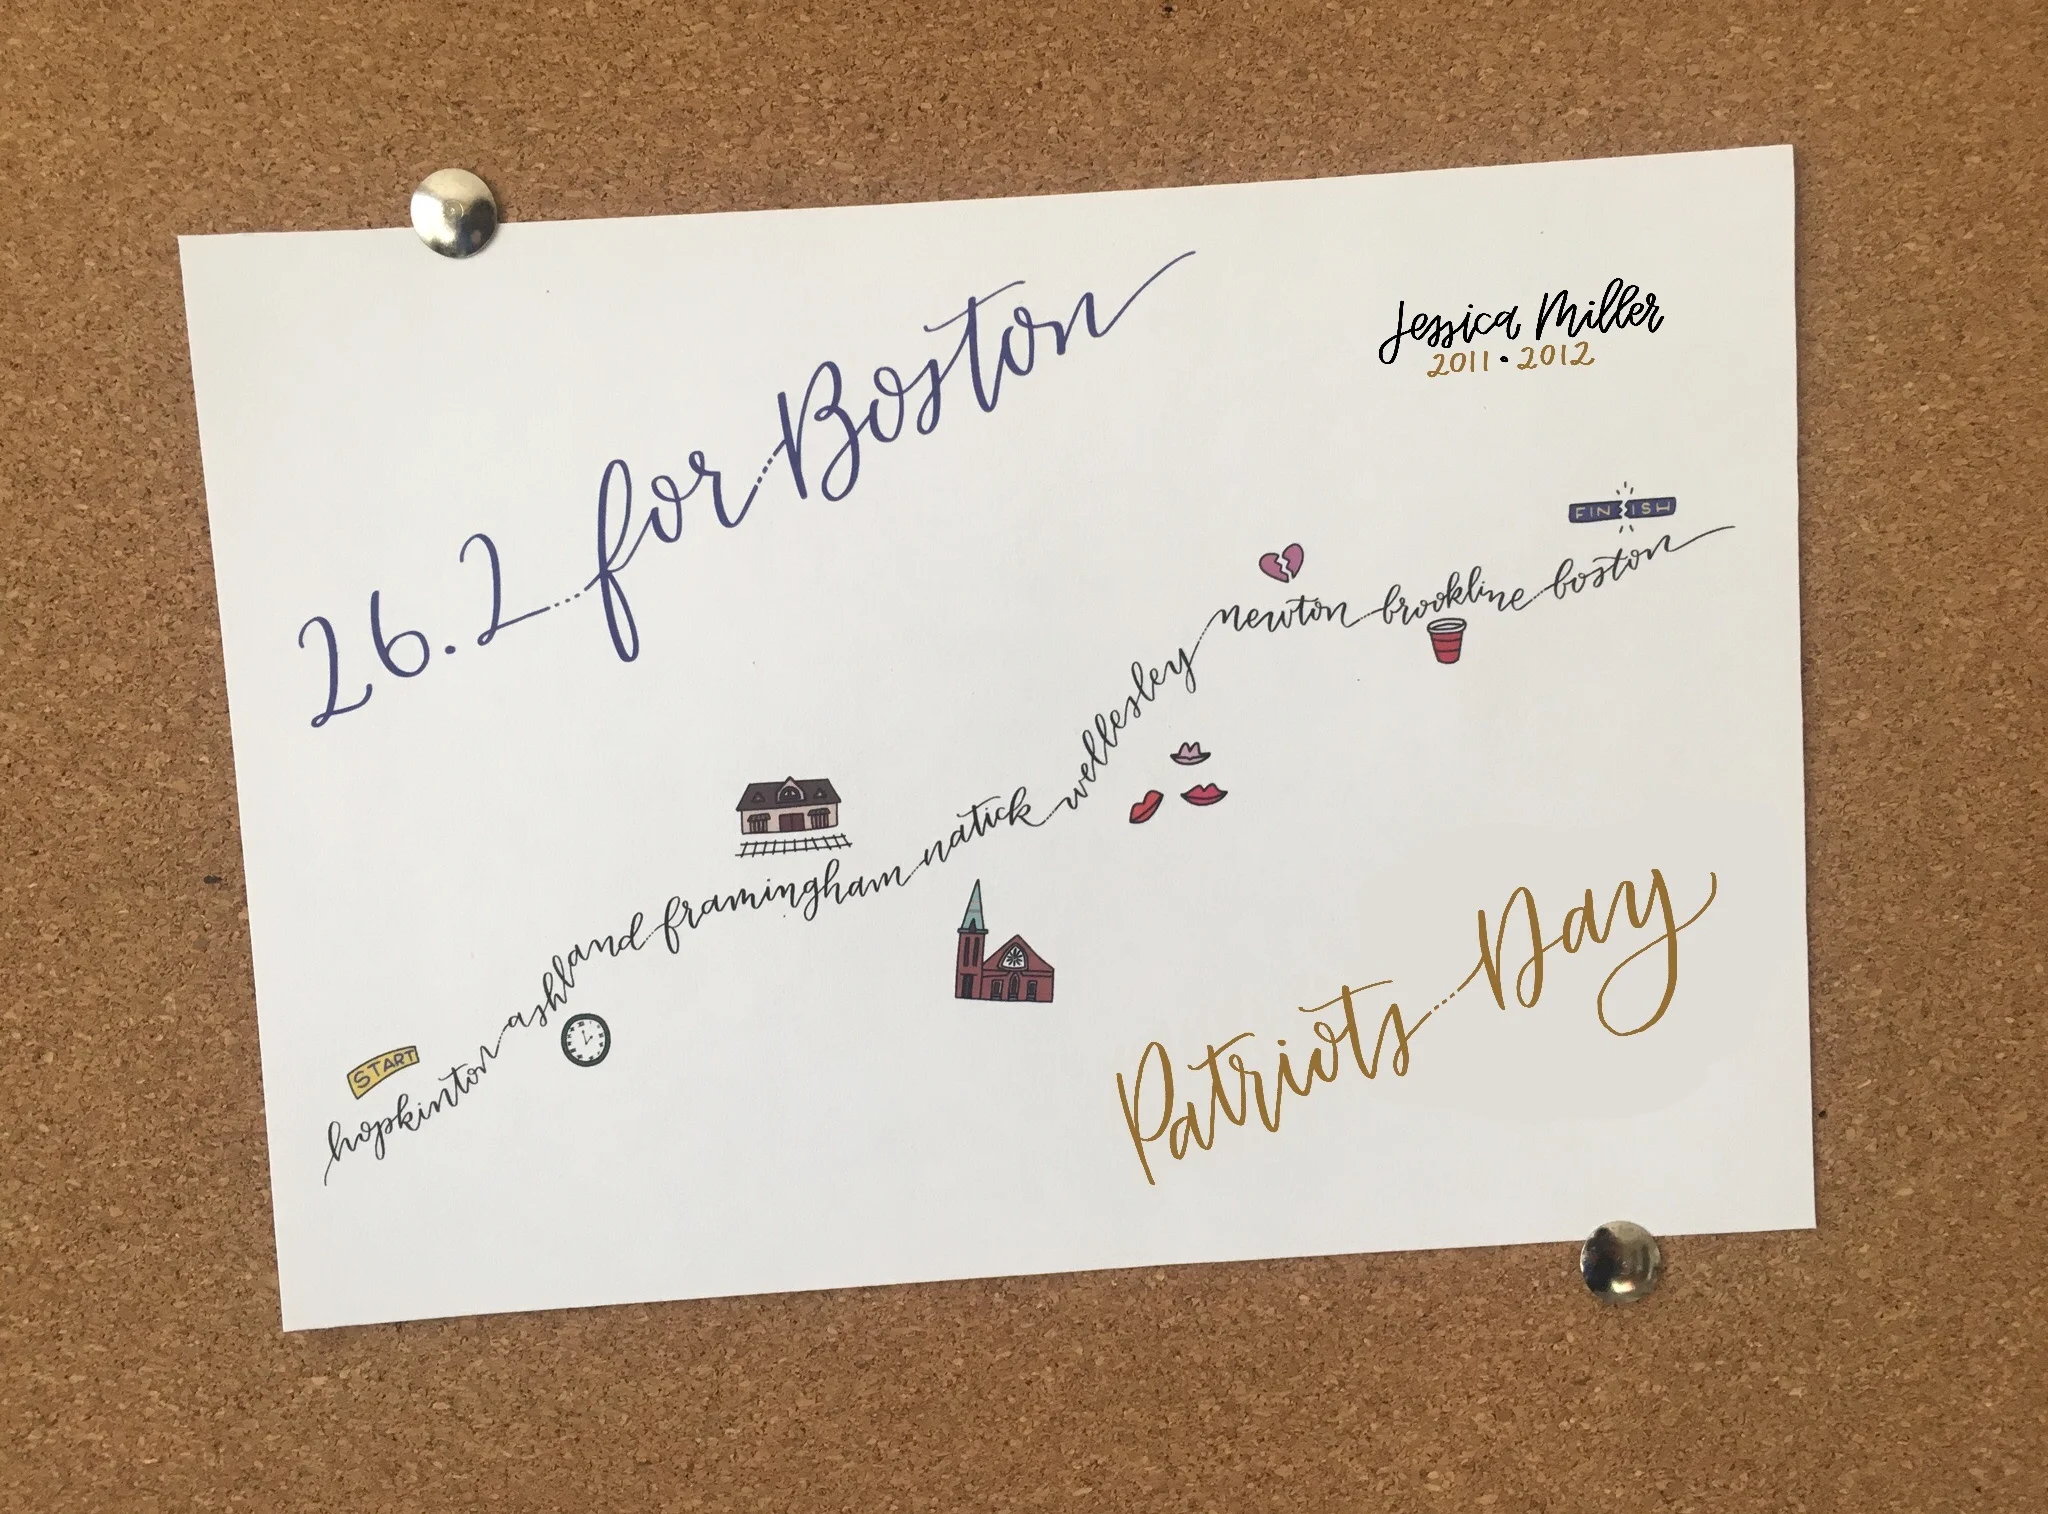 26.2 for Boston
Jessica Miller
2011 • 2012
FINISH
START
hopkinton ashland framingham natick wellesley newton brookline boston
Patriots Day